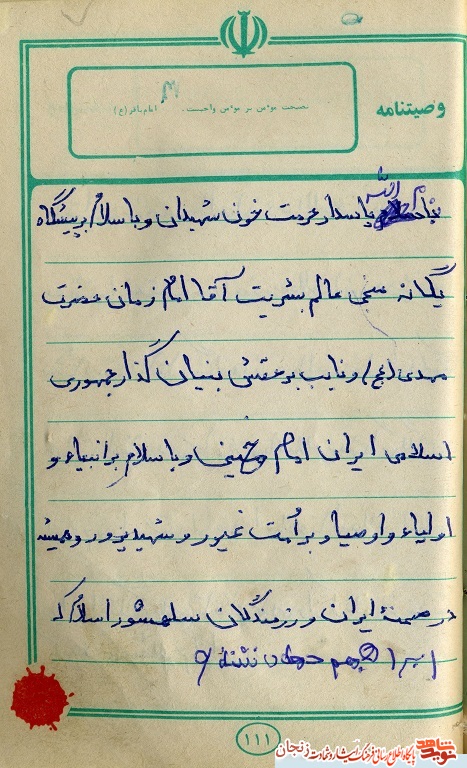 وصیتنامه
نصیحت مؤمن بر مؤمن واجبست. امام باقر (ع)
بنام الله پاسدار حرمت خون شهیدان و با سلام بر پیشگاه
یگانه منجی عالم بشریت آقا امام زمان حضرت
مهدی (عج) و نایب بر حقش بنیان گذار جمهوری
اسلامی ایران امام خمینی و با سلام بر انبیاء و
اولیاء و اوصیا و بر اُمت غیور و شهید پرور و همیشه
در صحنهٔ ایران و رزمندگان سلحشور اسلام که
ابراهیم
۱۱۱
نوید شاهد
پایگاه اطلاع رسانی فرهنگ ایثار و شهادت زنجان